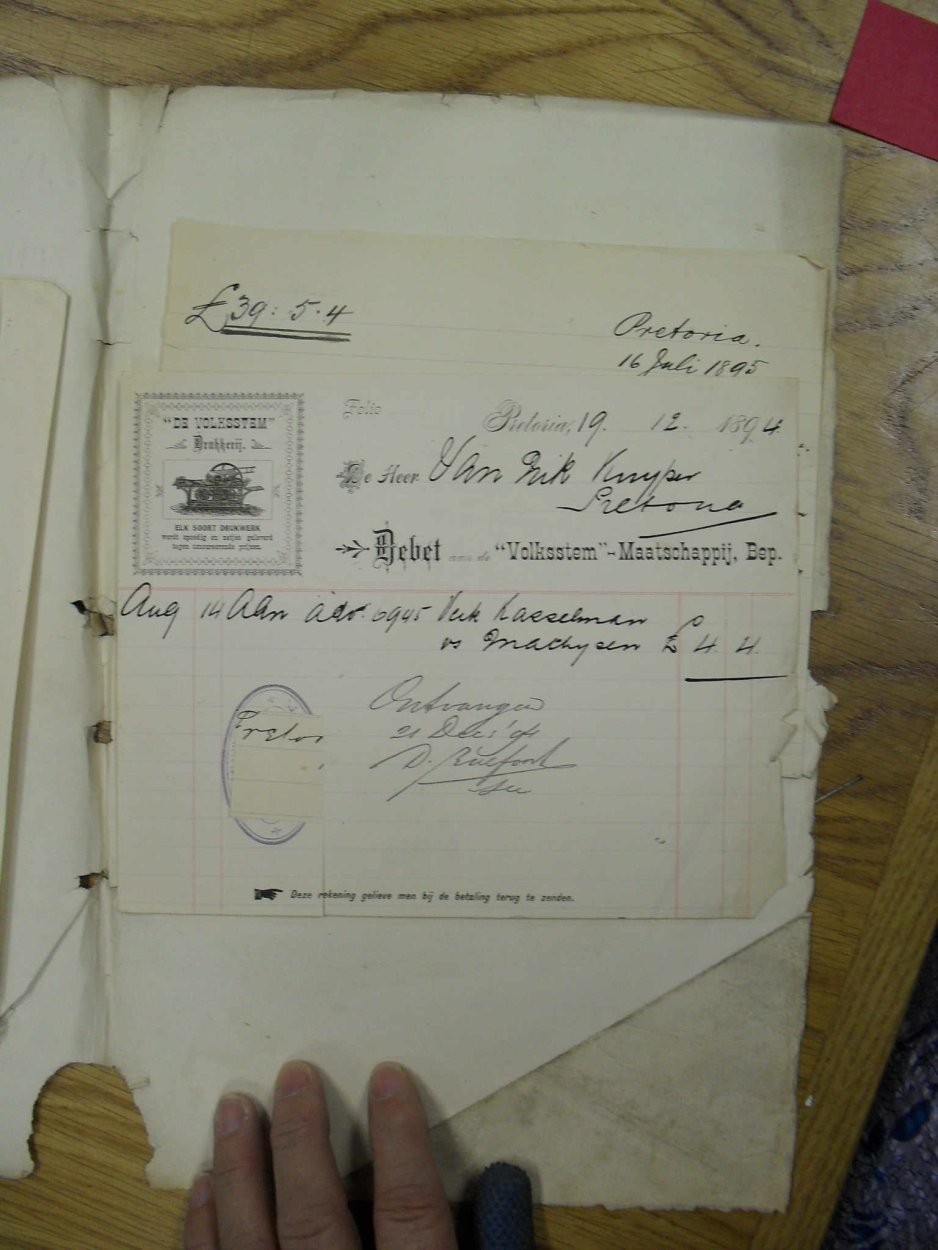 £39: 5. 4
Pretoria.
16 Juli 1895
"DE VOLKSSTEM"
Drukkerij.
ELK SOORT DRUKWERK
wordt spoedig en netjes geleverd
tegen concurreerende prijzen.
Folio
Pretoria, 19. 12. 1894
De Heer Van Eik Kuyper
Pretoria
Debet aan de "Volksstem"-Maatschappij, Bep.
Aug 14 Aan adv. 6945 Verk Kasselman
vs Mathysen £ 4. 4.
Ontvangen
21 Dec '94
D.
Pretor
Deze rekening gelieve men bij de betaling terug te zenden.